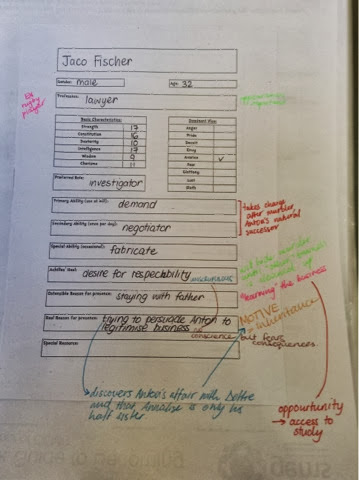 Jaco Fischer
Gender: male
Age: 32
Profession: lawyer
Ex
rugby
player
Basic Characteristics:
Strength 17
Constitution 16
Dexterity 10
Intelligence 17
Wisdom 9
Charisma 11
Dominant Vice:
Anger
Pride
Deceit
Envy
Avarice ✓
Fear
Gluttony
Lust
Sloth
Preferred Role: investigator
Primary Ability (use at will): demand
Secondary Ability (once per day): negotiator
takes charge
after murder,
Anton's natural
successor
Special Ability (occasional): fabricate
Achilles' Heel: desire for respectability
Ostensible Reason for presence: staying with father
"learning" the business
Real Reason for presence: trying to persuade Anton to
legitimise business
conscience
but fears
consequences.
MOTIVE
inheritance
Special Resource:
→discovers Anton's affair with Dettre
and that Annelise is only his
half sister
oppourtunity
→ access to
study